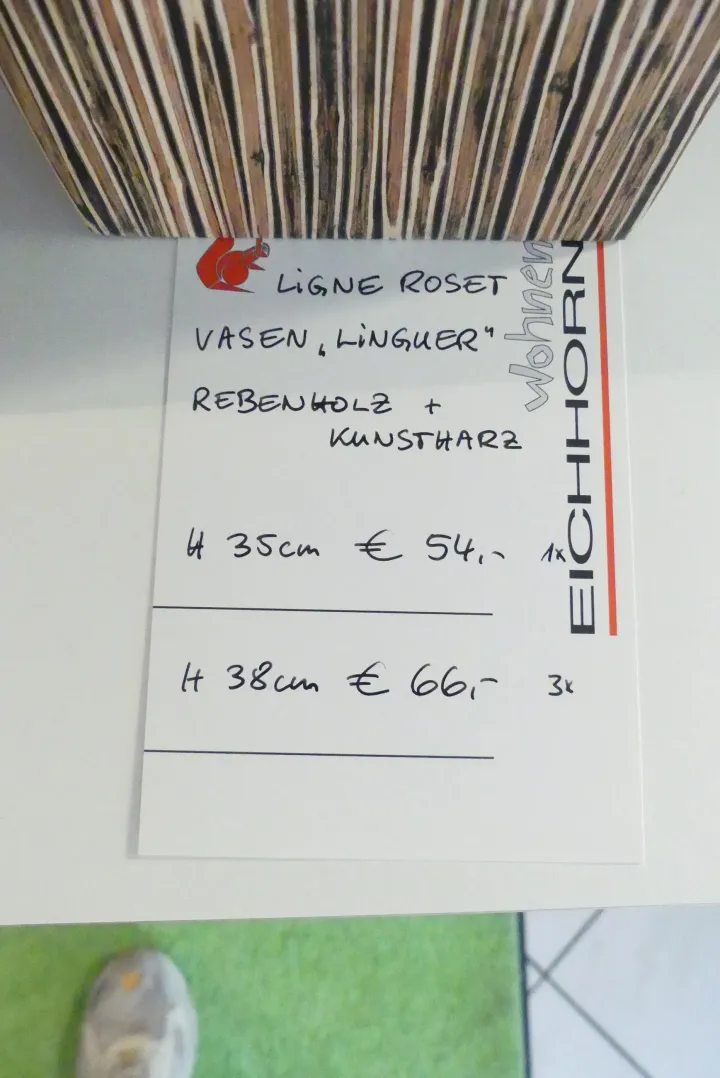 LiGNE ROSET
VASEN „LiNGUER“
REBENHOLZ +
KUNSTHARZ
H 35cm € 54,- 1x
H 38cm € 66,- 3x
Wohnen
EICHHORN